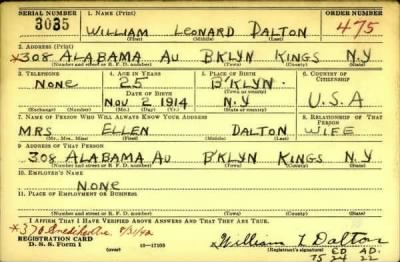 SERIAL NUMBER 1. NAME (Print) ORDER NUMBER
3035 WILLIAM LEONARD DALTON 475
(First) (Middle) (Last)
2. ADDRESS (Print)
*308 ALABAMA AU B'KLYN KINGS N.Y
(Number and street or R. F. D. number) (Town) (County) (State)
3. TELEPHONE 4. AGE IN YEARS 5. PLACE OF BIRTH 6. COUNTRY OF CITIZENSHIP
NONE 25 B'KLYN.
DATE OF BIRTH (Town or county)
NOV 2 1914 N.Y U.S.A
(Exchange) (Number) (Mo.) (Day) (Yr.) (State or country)
7. NAME OF PERSON WHO WILL ALWAYS KNOW YOUR ADDRESS 8. RELATIONSHIP OF THAT PERSON
MRS ELLEN DALTON WIFE
(Mr., Mrs., Miss) (First) (Middle) (Last)
9. ADDRESS OF THAT PERSON
308 ALABAMA AU B'KLYN KINGS N.Y
(Number and street or R. F. D. number) (Town) (County) (State)
10. EMPLOYER'S NAME
NONE
11. PLACE OF EMPLOYMENT OR BUSINESS
(Number and street or R. F. D. number) (Town) (County) (State)
I AFFIRM THAT I HAVE VERIFIED ABOVE ANSWERS AND THAT THEY ARE TRUE.
REGISTRATION CARD
D. S. S. FORM 1 (over) 16—17105 William L Dalton
(Registrant's signature)